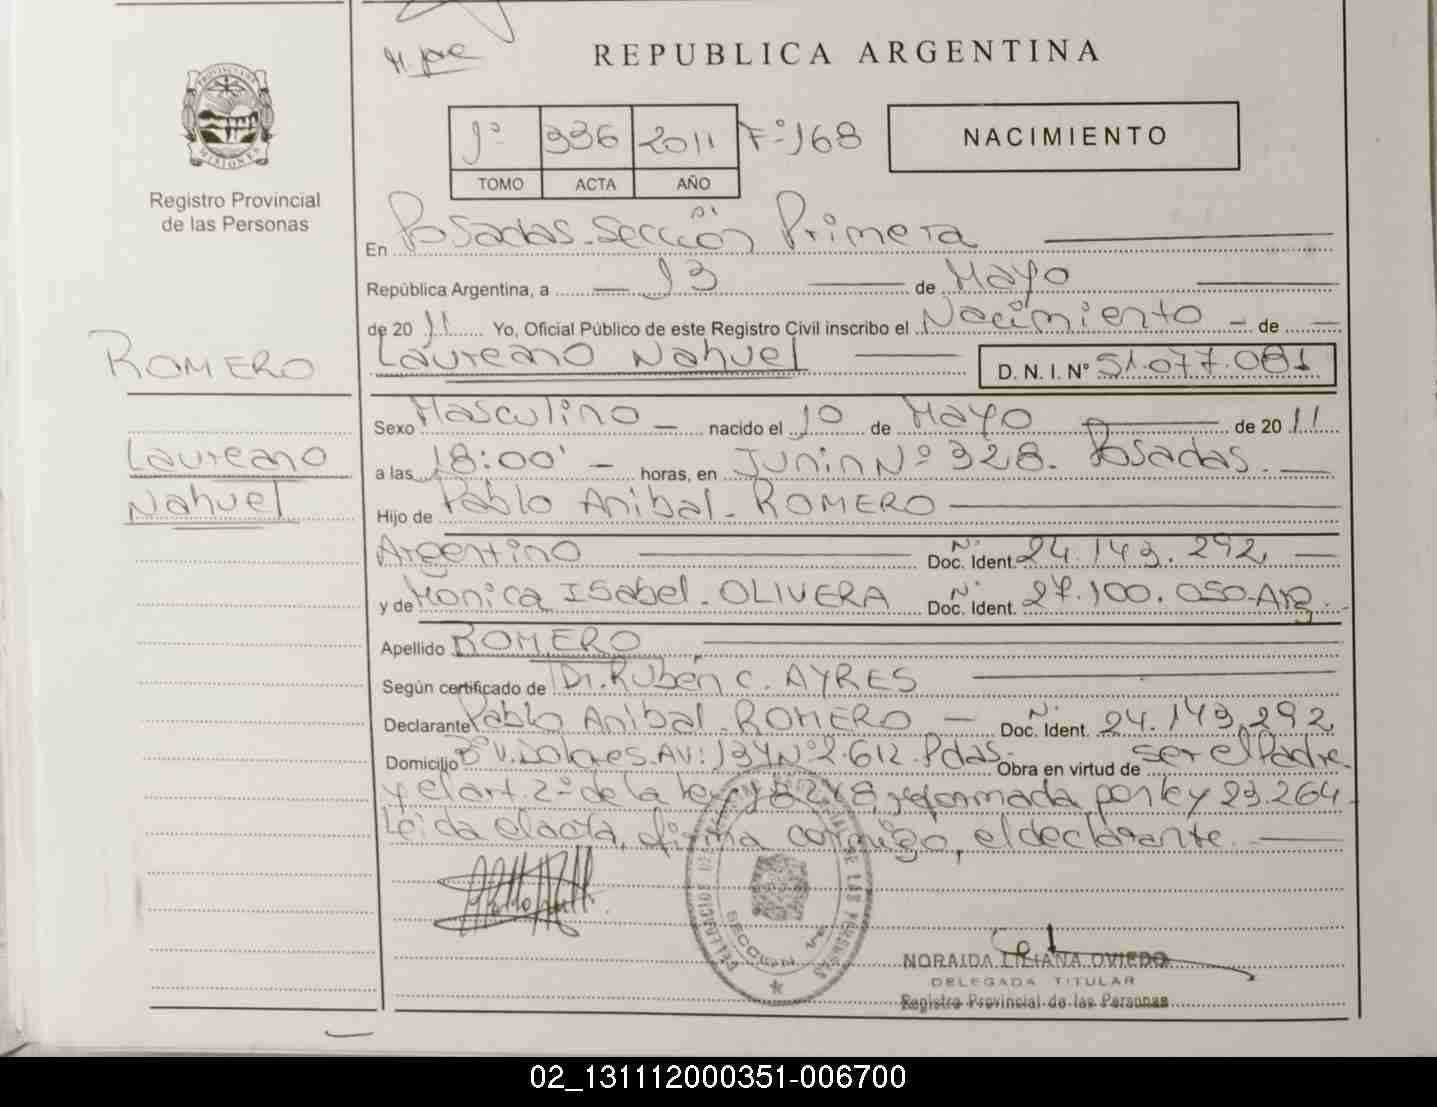 REPUBLICA ARGENTINA
PROVINCIA DE MISIONES
Registro Provincial
de las Personas
1º 336 2011 Fº 168
TOMO ACTA AÑO
NACIMIENTO
En Posadas. Sección Primera
República Argentina, a 13 de Mayo
de 2011 Yo, Oficial Público de este Registro Civil inscribo el Nacimiento - de
ROMERO
Laureano Nahuel D. N. I. Nº 51.077.081
Sexo Masculino nacido el 10 de Mayo de 2011
Laureano
a las 18:00' - horas, en Junin Nº 328. Posadas.
Nahuel
Hijo de Pablo Anibal. ROMERO
Argentino Doc. Ident. Nº 24.143.292
y de Monica Isabel. OLIVERA Doc. Ident. Nº 27.100.050. Arg.
Apellido ROMERO
Según certificado de Dr. Rubén C. AYRES
Declarante Pablo Anibal. ROMERO Doc. Ident. Nº 24.143.292
Domicilio Bº V. Dolores. AV: 134 Nº 2.612. Pdas. Obra en virtud de ser el Padre.
y el art. 2º de la ley 18248, reformada por ley 23.264.
Leida el acta, firma conmigo, el declarante.
NORAIDA LILIANA OVIEDO
DELEGADA TITULAR
Registro Provincial de las Personas
02_131112000351-006700